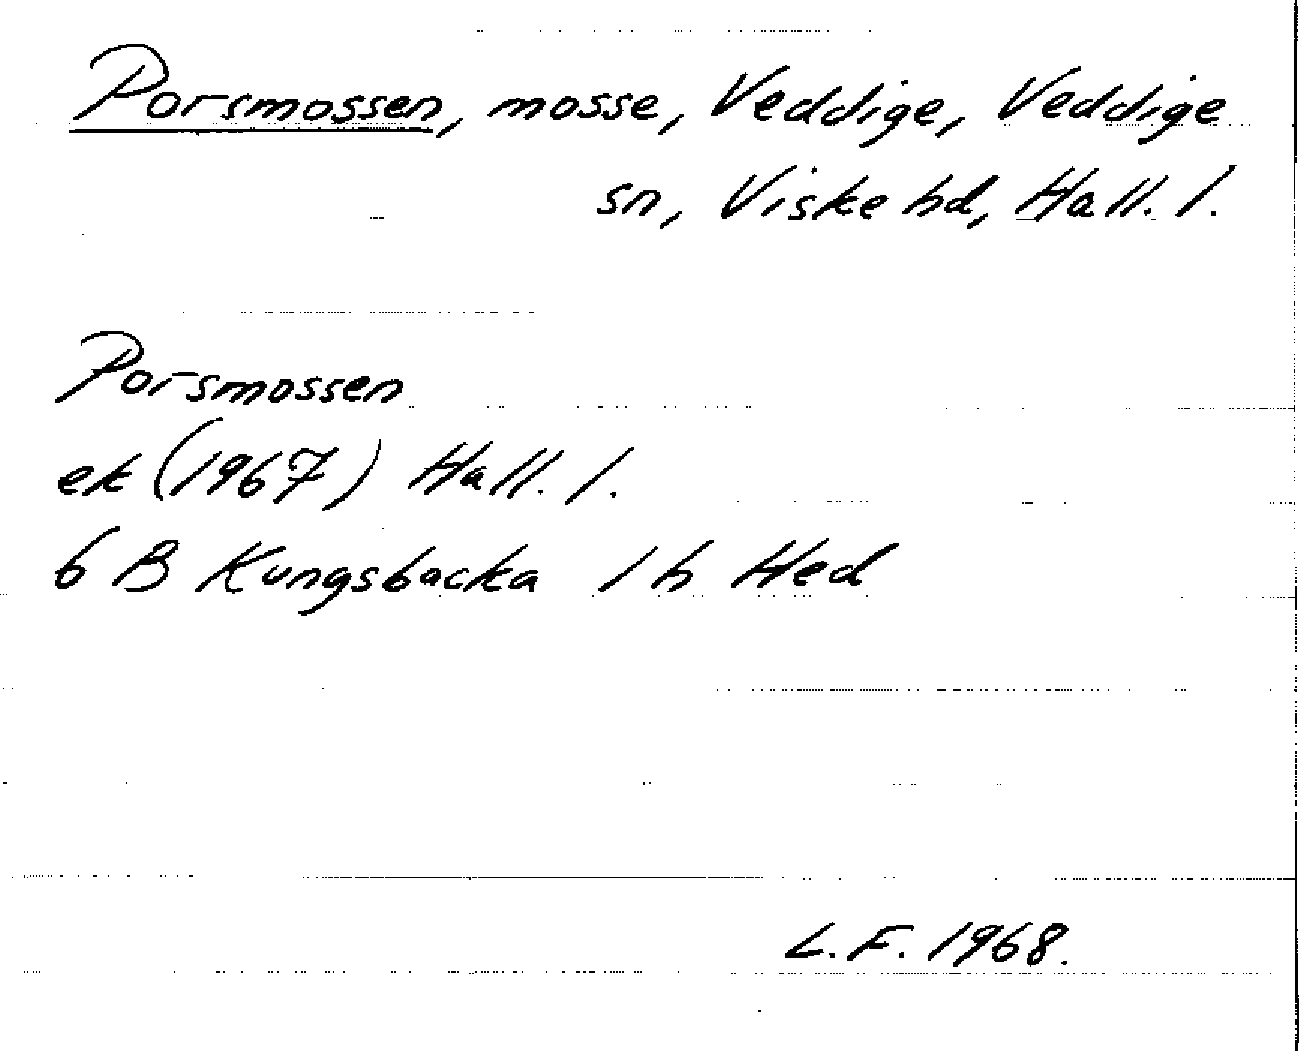 Porsmossen, mosse, Veddige, Veddige
sn, Viske hd, Hall. l.
Porsmossen
ek (1967) Hall. l.
6 B Kungsbacka 1 h Hed
L. F. 1968.